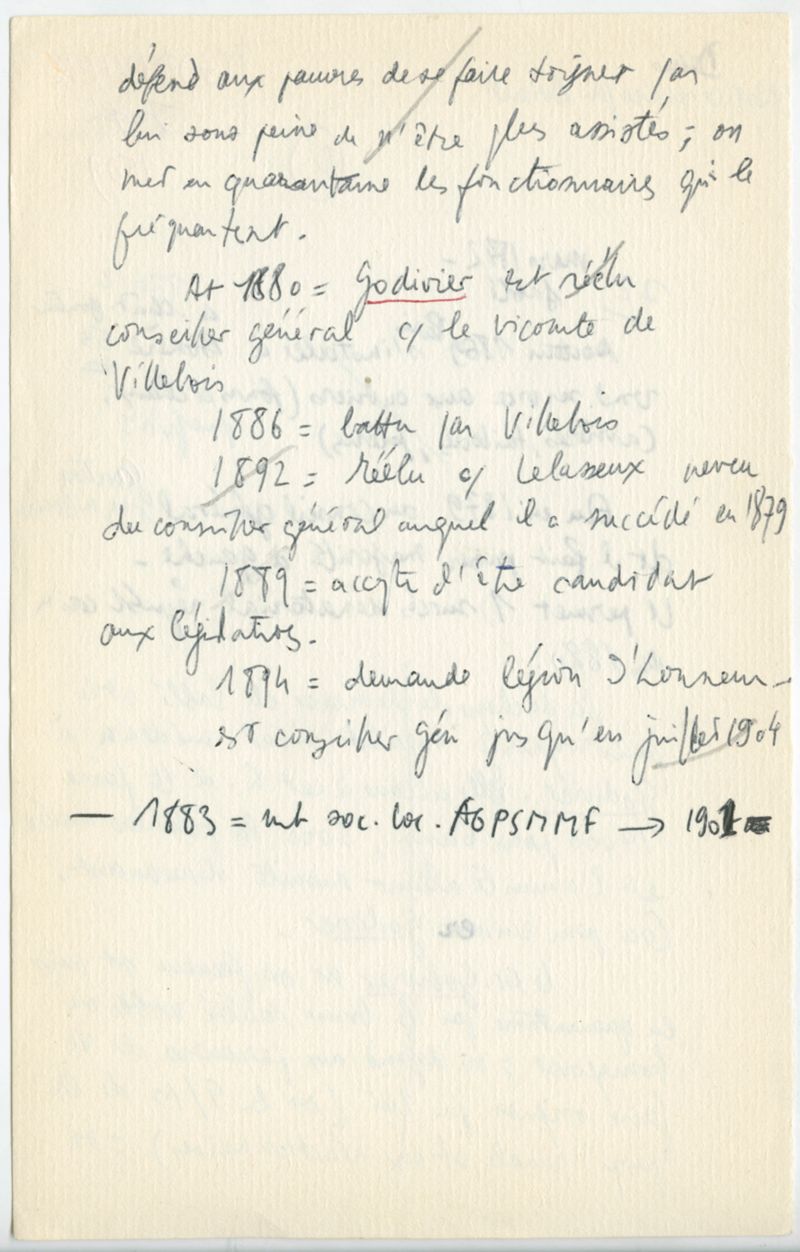 défend aux pauvres de se faire soigner par
lui sous peine de n'être plus assistés ; on
met en quarantaine les fonctionnaires qui le
fréquentent.
At 1880 = Godivier est réélu
conseiller général c/ le vicomte de
Villebois
1886 = battu par Villebois
1892 = réélu c/ Lelasseux neveu
du conseiller général auquel il a succédé en 1879
1889 = accepte d'être candidat
aux législatives.
1894 = demande légion d'Honneur -
est conseiller gén jusqu'en juillet 1904
— 1883 = mt soc. loc. AGPSMMF → 1901